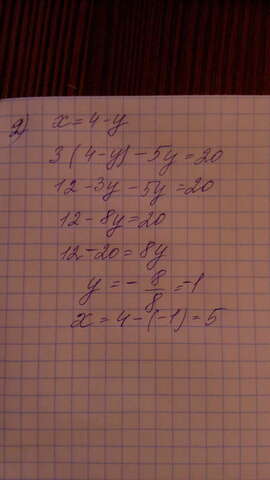 2) x = 4 - y
3 (4 - y) - 5y = 20
12 - 3y - 5y = 20
12 - 8y = 20
12 - 20 = 8y
y = - 8/8 = -1
x = 4 - (-1) = 5